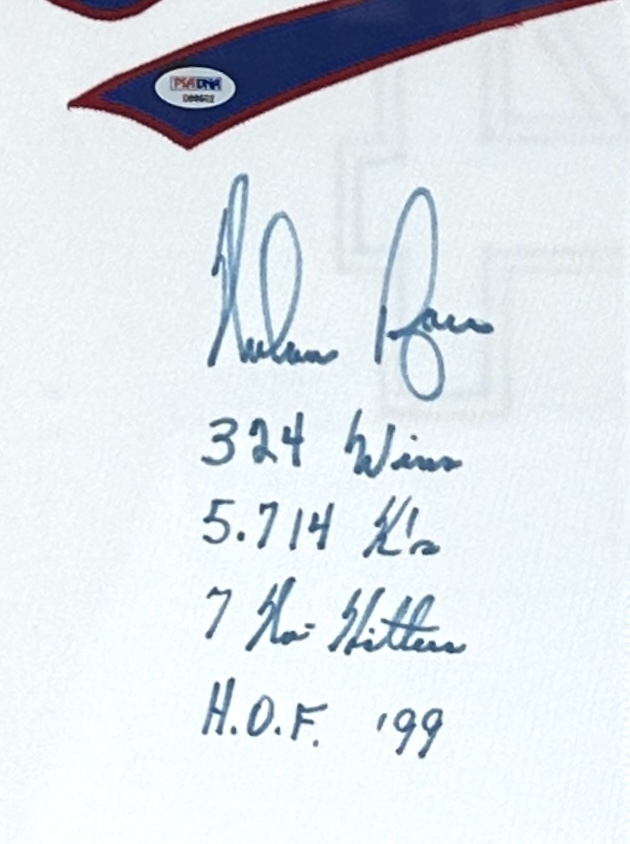 PSA DNA
Nolan Ryan
324 Wins
5.714 K's
7 No-Hitters
H.O.F. '99